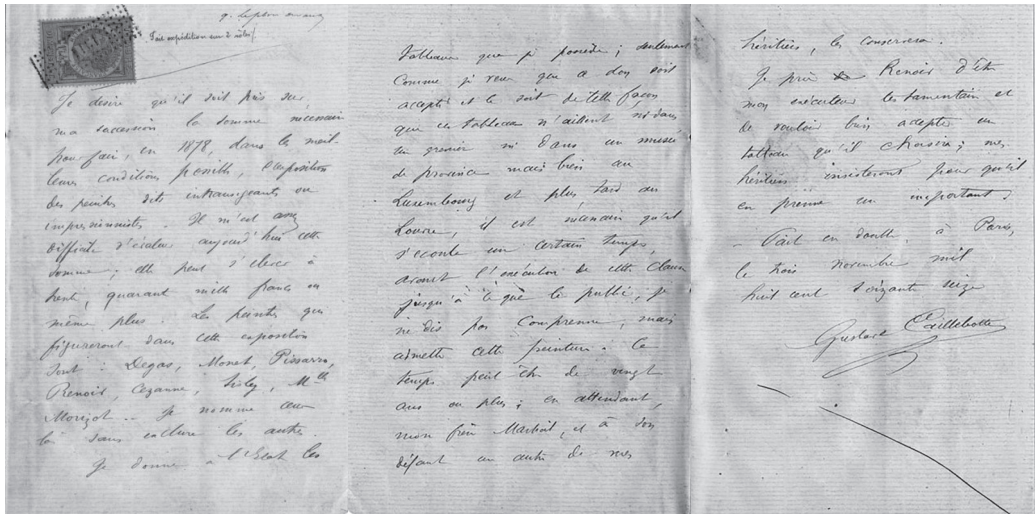 Fait expédition sur 2 rôles/.
Je désire qu'il soit pris sur
ma succession la somme nécessaire
pour faire, en 1878, dans les meil-
leures conditions possible, l'exposition
des peintres dits intransigeants ou
impressionnistes. Il m'est assez
difficile d'évaluer aujourd'hui cette
somme; elle peut s'élever à
trente, quarante mille francs ou
même plus. Les peintres qui
figureront dans cette exposition
sont: Degas, Monet, Pissarro,
Renoir, Cezanne, Sisley, Mlle
Morizot. Je nomme ceux
là sans exclure les autres.
Je donne à l'Etat les
tableaux que je possède; seulement
comme je veux que ce don soit
accepté et le soit de telle façon
que ces tableaux n'aillent ni dans
un grenier ni dans un musée
de province mais bien au
Luxembourg et plus tard au
Louvre, il est nécessaire qu'il
s'écoule un certain temps
avant l'exécution de cette clause
jusqu'à ce que le public, je
ne dis pas comprenne, mais
admette cette peinture. Ce
temps peut être de vingt
ans ou plus; en attendant,
mon frère Martial, et à son
défaut un autre de mes
héritiers, les conservera.
Je prie Renoir d'être
mon exécuteur testamentaire et
de vouloir bien accepter un
tableau qu'il choisira; mes
héritiers insisteront pour qu'il
en prenne un important.
Fait en double à Paris,
le trois novembre mil
huit cent soixante seize
Gustave Caillebotte